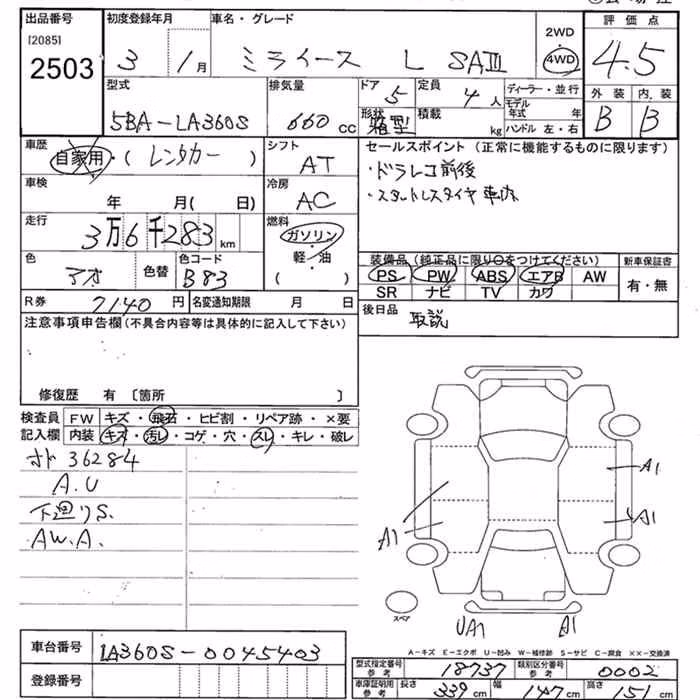 出品番号 初度登録年月 車名・グレード 評価点
[2085] 2WD
2503 3 1月 ミライース L SAⅢ 4WD 4.5
型式 排気量 ドア 定員 ディーラー・並行 外装 内装
5BA-LA360S 660cc 5 4人 モデル年式 年 B B
形状 箱型 積載 kg ハンドル 左・右
車歴 シフト セールスポイント (正常に機能するものに限ります)
自家用・(レンタカー) AT ・ドラレコ前後
車検 冷房 ・スタットレスタイヤ車内
年 月( 日) AC
走行 燃料
3万6千283km ガソリン
色 色替 色コード 軽・油 装備品 (純正品に限り○をつけてください) 新車保証書
アオ B83 ( ) PS PW ABS エアB AW 有・無
SR ナビ TV カワ
R券 7140円 名変通知期限 月 日 後日品
注意事項申告欄(不具合内容等は具体的に記入して下さい) 取説
修復歴 有 〔箇所 〕
検査員 FW キズ・飛石・ヒビ割・リペア跡・×要
記入欄 内装 キズ・汚レ・コゲ・穴・スレ・キレ・破レ
オド 36284
A.U
下廻りS.
A.W.A.
A1
A1
A1
スペア
UA1 A1
A-キズ E-エクボ U-凹み W-補修跡 S-サビ C-腐食 ××-交換済
車台番号 LA360S-0045403 型式指定番号 参考 18737 類別区分番号 参考 0002
登録番号 車庫証明用 参考 長さ 339cm 幅 147cm 高さ 151cm